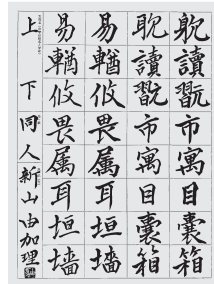 躭讀翫市寓目囊箱
耽讀翫市寓目囊箱
易輶攸畏属耳垣墻
易輶攸畏属耳垣墻
上下同人新山由加理